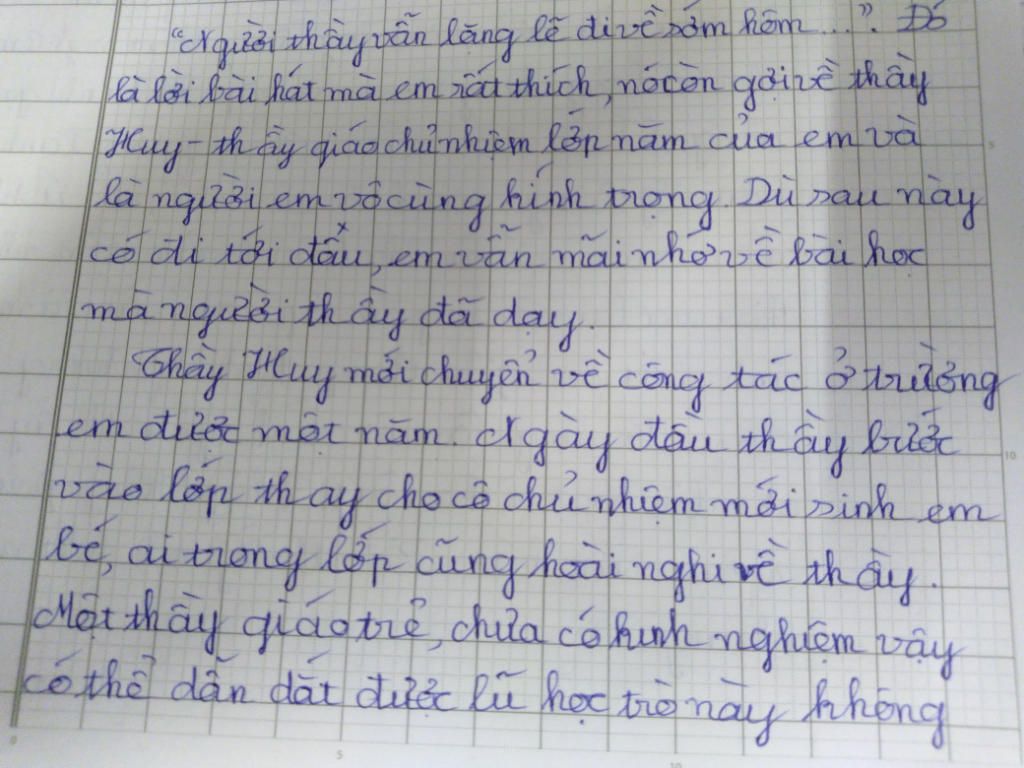 "Người thầy vẫn lặng lẽ đi về sớm hôm...". Đó
là lời bài hát mà em rất thích, nó còn gợi về thầy
Huy - thầy giáo chủ nhiệm lớp năm của em và
là người em vô cùng kính trọng. Dù sau này
có đi tới đâu, em vẫn mãi nhớ về bài học
mà người thầy đã dạy.
Thầy Huy mới chuyển về công tác ở trường
em được một năm. Ngày đầu thầy bước
vào lớp thay cho cô chủ nhiệm mới sinh em
bé, ai trong lớp cũng hoài nghi về thầy.
Một thầy giáo trẻ, chưa có kinh nghiệm vậy
có thể dẫn dắt được lũ học trò này không